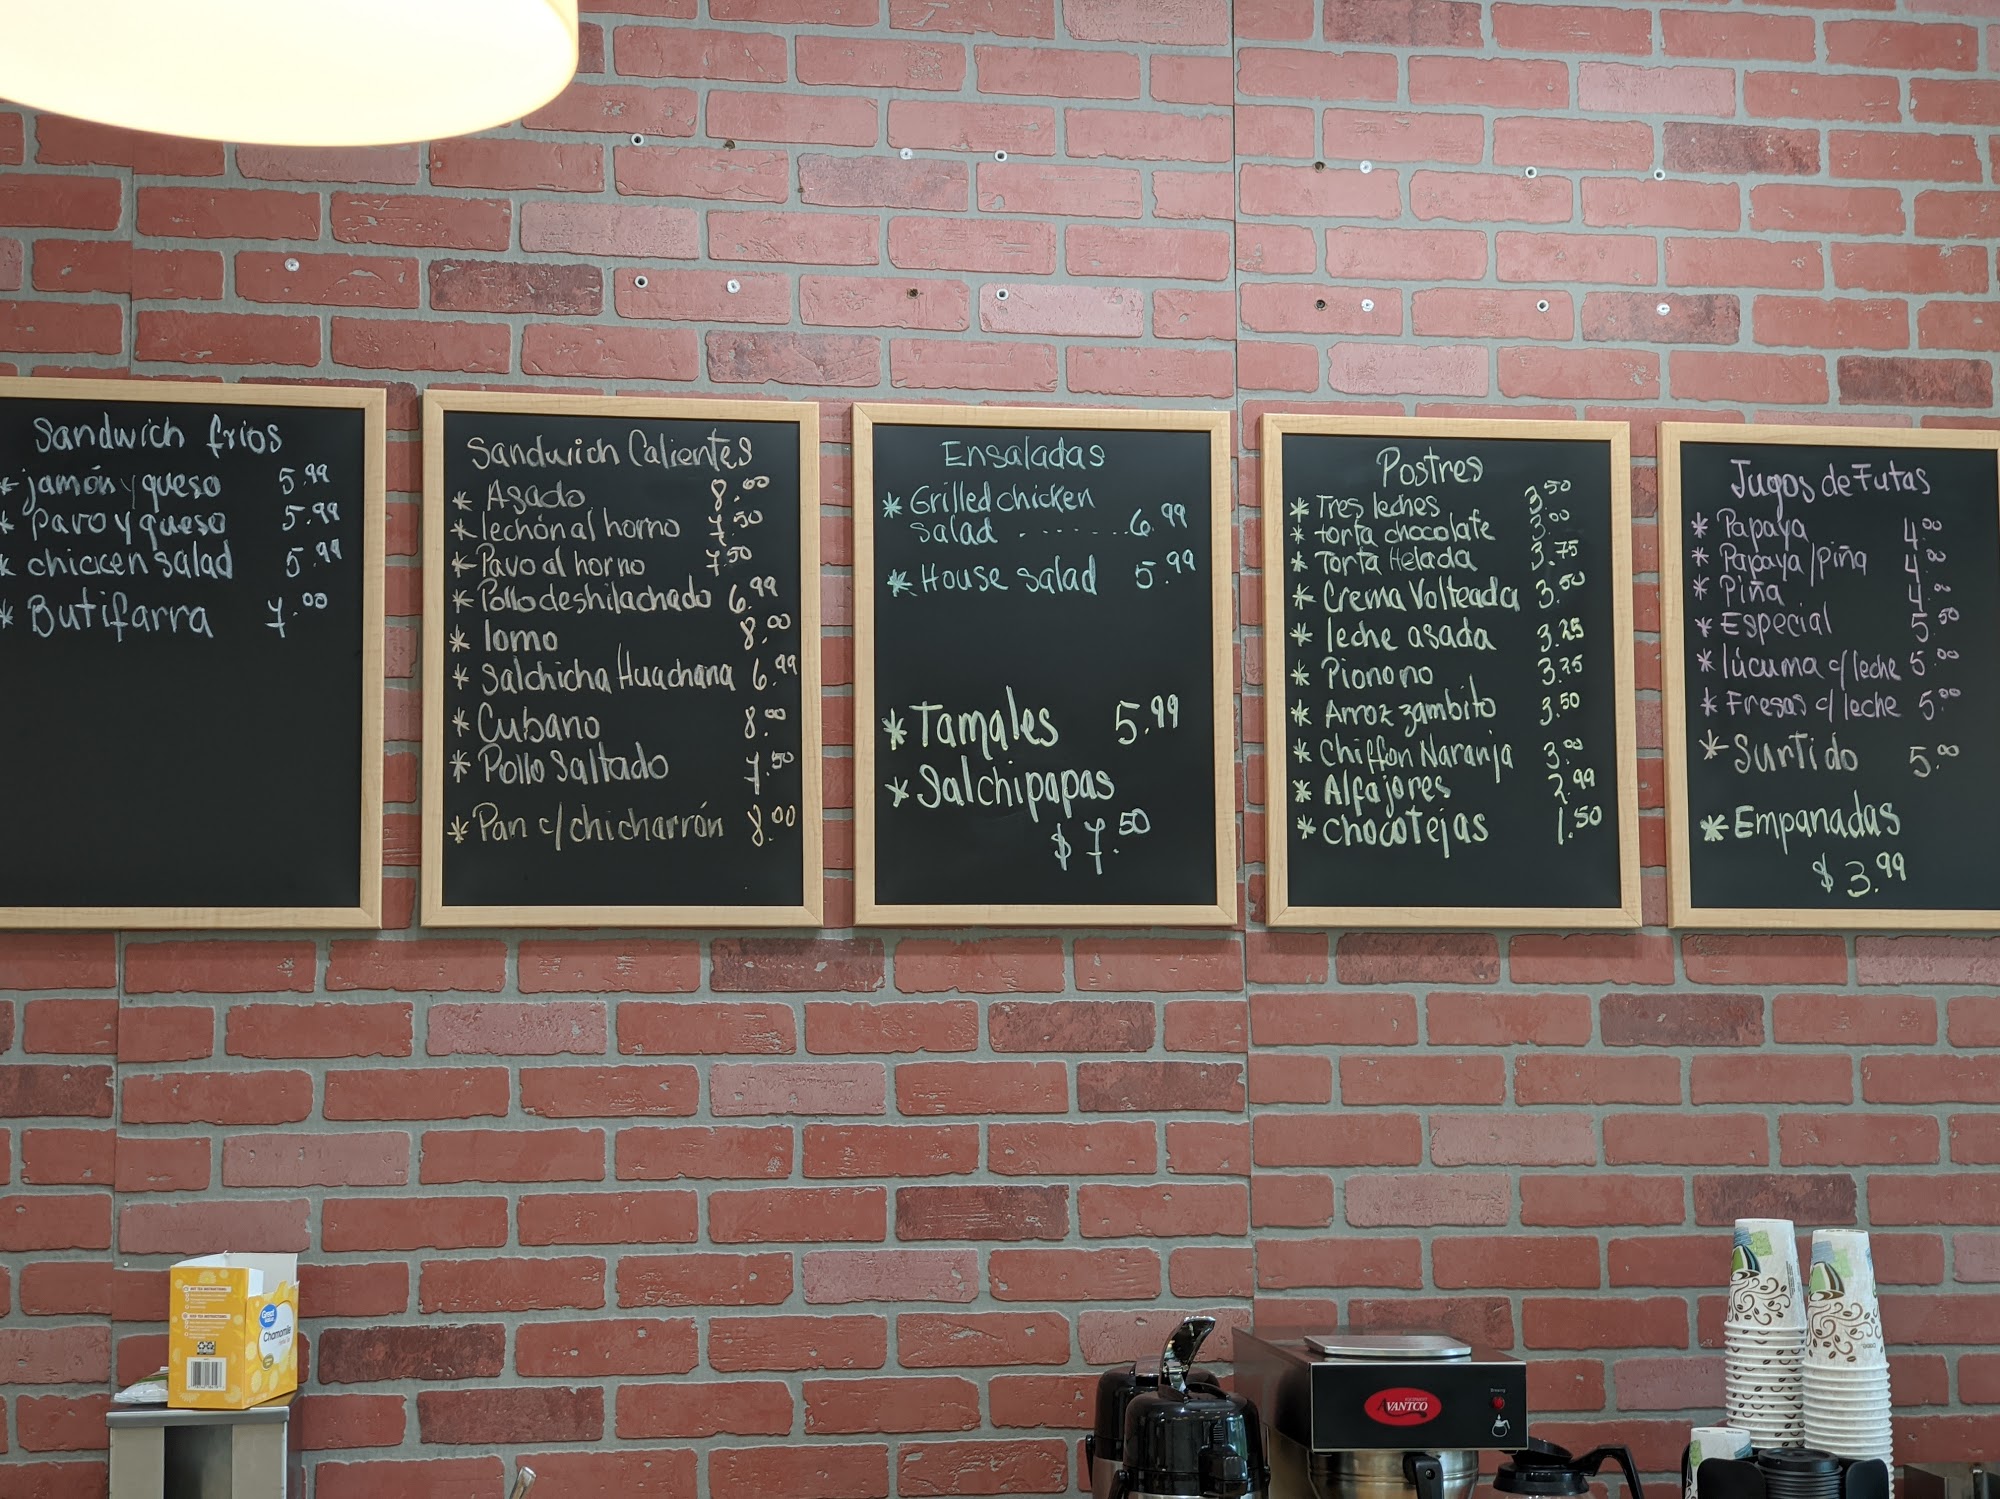 Sandwich frios
* jamón y queso 5.99
* Pavo y queso 5.99
* chicken salad 5.99
* Butifarra 7.00
Sandwich Calientes
* Asado 8.00
* lechón al horno 7.50
* Pavo al horno 7.50
* Pollo deshilachado 6.99
* lomo 8.00
* Salchicha Huachana 6.99
* Cubano 8.00
* Pollo Saltado 7.50
* Pan c/chicharrón 8.00
Ensaladas
* Grilled chicken
salad ....... 6.99
* House salad 5.99
* Tamales 5.99
* Salchipapas
$ 7.50
Postres
* Tres leches 3.50
* torta chocolate 3.00
* Torta Helada 3.75
* Crema Volteada 3.50
* leche asada 3.25
* Pionono 3.75
* Arroz zambito 3.50
* Chiffon Naranja 3.00
* Alfajores 2.99
* Chocotejas 1.50
Jugos de Futas
* Papaya 4.00
* Papaya/piña 4.00
* Piña 4.00
* Especial 5.50
* lúcuma c/leche 5.00
* Fresas c/leche 5.00
* Surtido 5.00
* Empanadas
$ 3.99
Great Value
Chamomile
AVANTCO